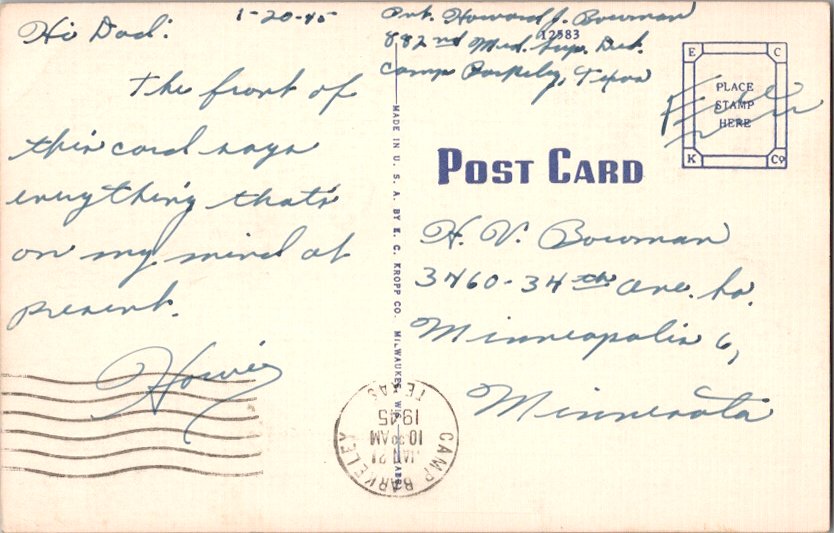 1-20-45
Hi Dad:
The front of
this card says
everything that's
on my mind at
present.
Howie
Pvt. Howard J. Bowman
12583
882nd Med. Sup. Det.
Camp Barkeley, Texas
E C
PLACE
STAMP
HERE
K Co
Free
MADE IN U. S. A. BY E. C. KROPP CO. MILWAUKEE, WIS.
POST CARD
H. V. Bowman
3460-34th Ave. So.
Minneapolis 6,
Minnesota
CAMP BARKELEY
JAN 21
10 30 AM
1945
TEXAS